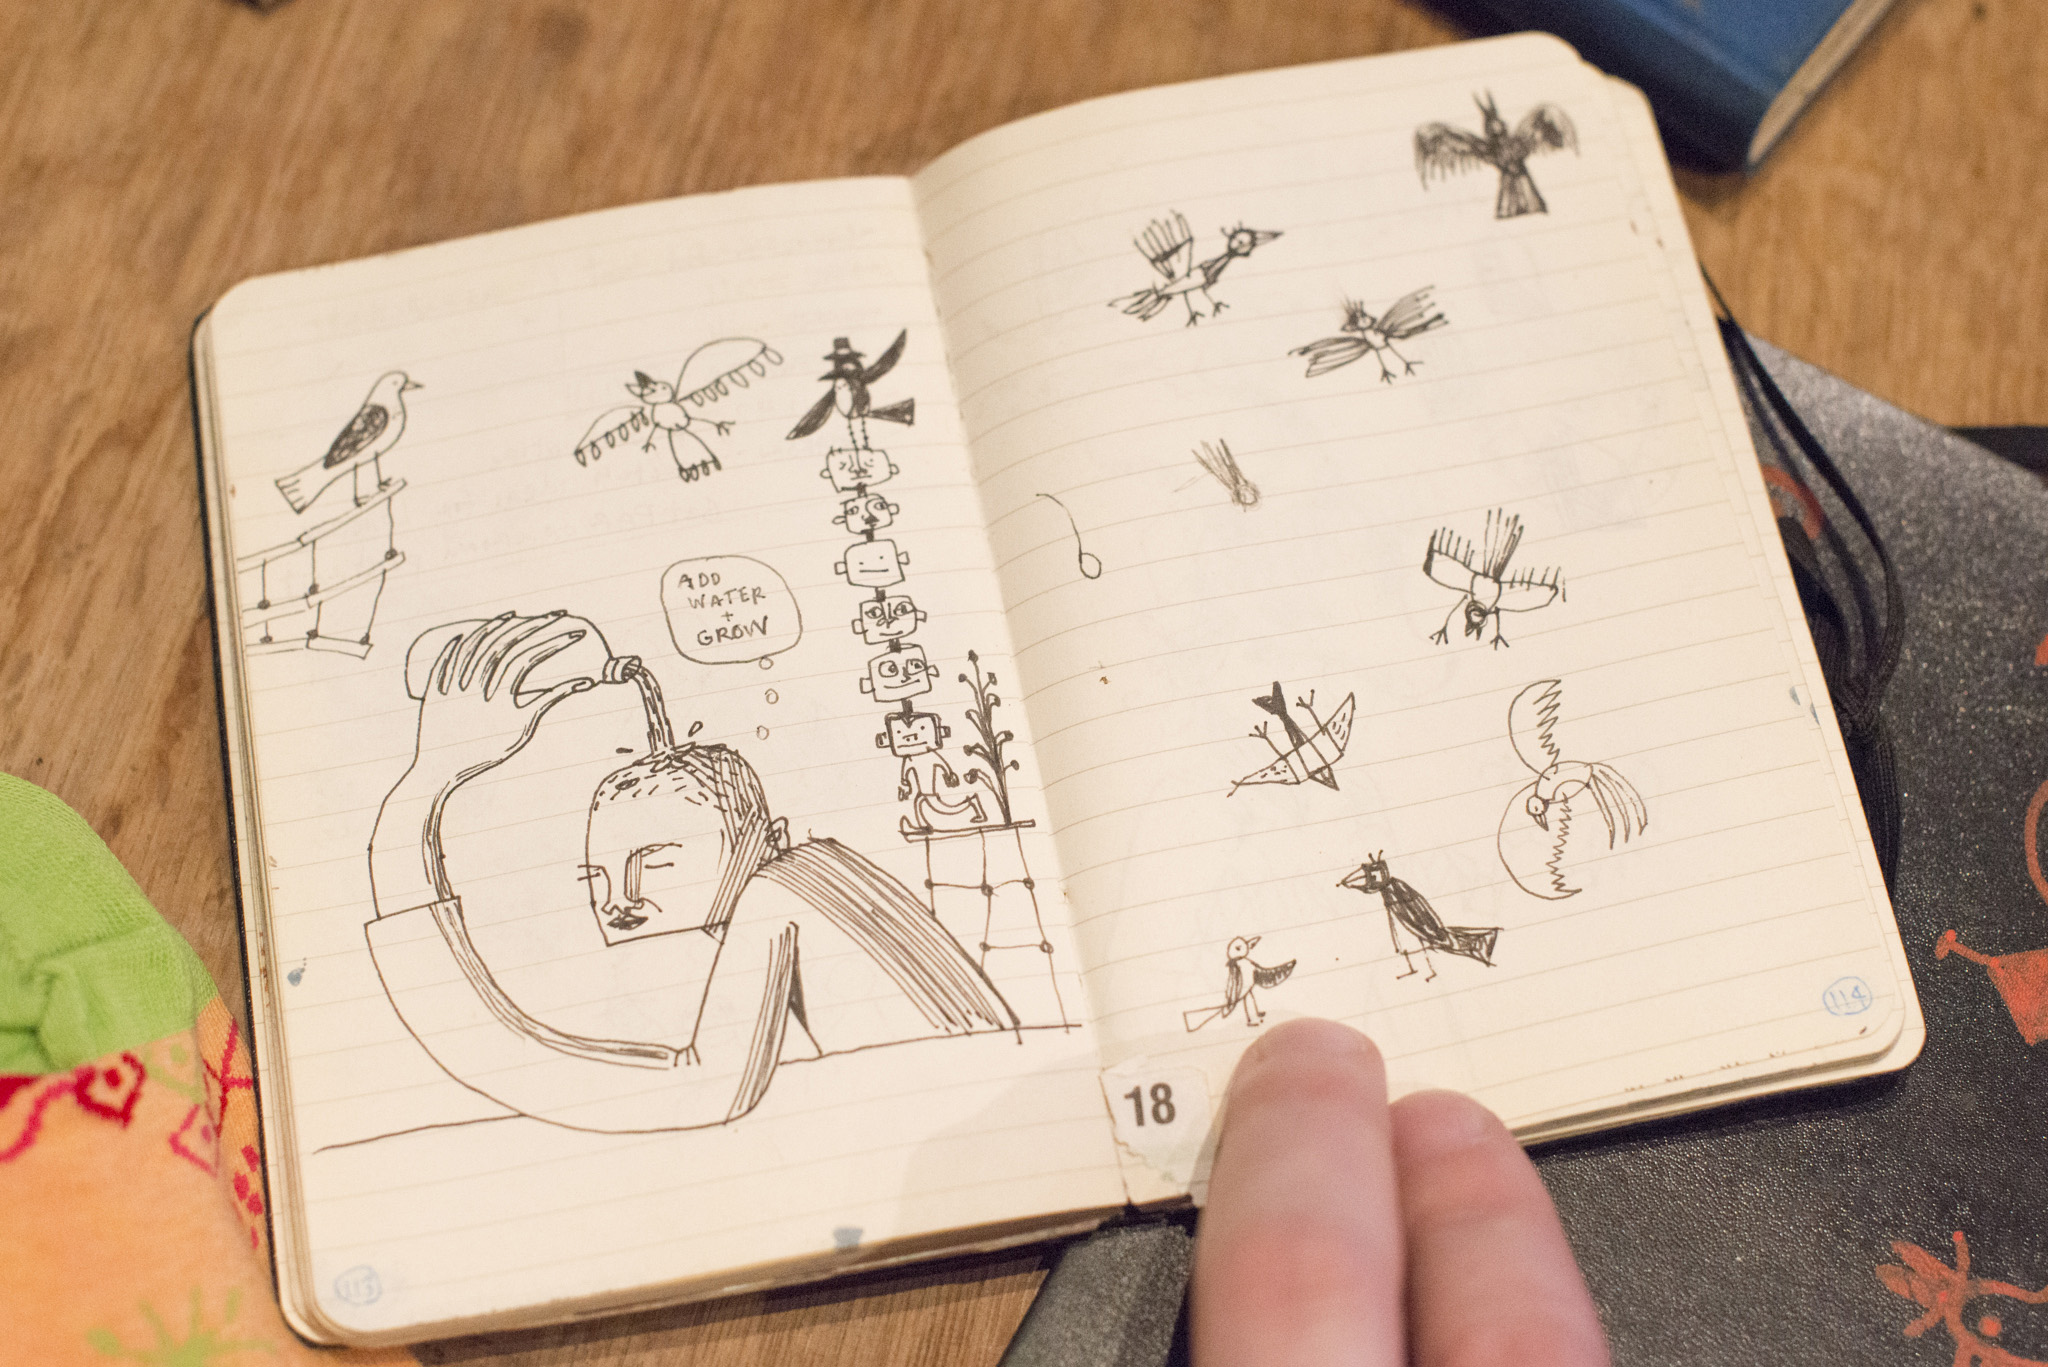 ADD
WATER
+
GROW
18
113
114